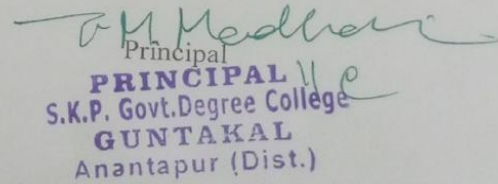 Principal
PRINCIPAL
S.K.P. Govt.Degree College
GUNTAKAL
Anantapur (Dist.)